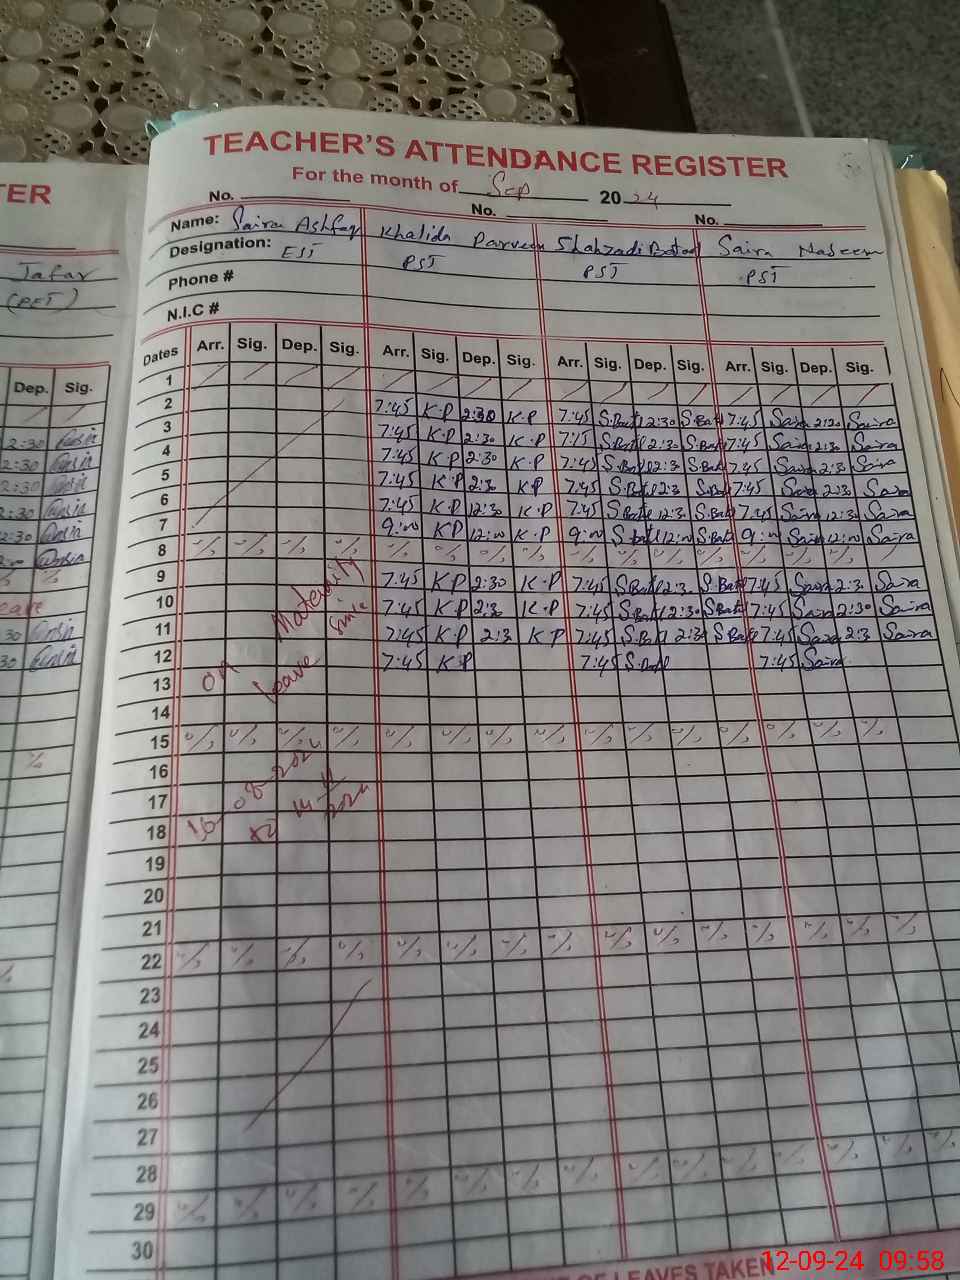 TER
Jafar
(PET)
Dep. Sig.
TEACHER'S ATTENDANCE REGISTER
For the month of Sep 2024
No. No. No.
Name: Saira Ashfaq Khalida Parveen Shahzadi Batool Saira Naseem
Designation: EST PST PST PST
Phone #
N.I.C #
Dates Arr. Sig. Dep. Sig. Arr. Sig. Dep. Sig. Arr. Sig. Dep. Sig. Arr. Sig. Dep. Sig.
1
2 7:45 K.P 2:30 K.P 7:45 S.Batl 2:30 S.Batl 7:45 Saira 2:20 Saira
3 7:45 K.P 2:30 K.P 7:15 S.Batl 2:30 S.Batl 7:45 Saira 2:30 Saira
4 7:45 K.P 2:30 K.P 7:45 S.Batl 2:3 S.Batl 7:45 Saira 2:3 Saira
5 7:45 K.P 2:30 K.P 7:45 S.Batl 2:3 S.Batl 7:45 Saira 2:30 Saira
6 7:45 K.P 12:30 K.P 7:45 S.Batl 12:30 S.Batl 7:45 Saira 12:30 Saira
7 9:00 K.P 12:00 K.P 9:00 S.Batl 12:00 S.Batl 9:00 Saira 12:00 Saira
8
9 7:45 K.P 2:30 K.P 7:45 S.Batl 2:3 S.Batl 7:45 Saira 2:3 Saira
10 7:45 K.P 2:3 K.P 7:45 S.Batl 2:30 S.Batl 7:45 Saira 2:30 Saira
11 7:45 K.P 2:3 K.P 7:45 S.Batl 2:30 S.Batl 7:45 Saira 2:3 Saira
12 7:45 K.P 7:45 S.Batl 7:45 Saira
on Maternity leave
since
16-08-2024
to 14-11-2024
13
14
15
16
17
18
19
20
21
22
23
24
25
26
27
28
29
30
OF LEAVES TAKEN
12-09-24 09:58